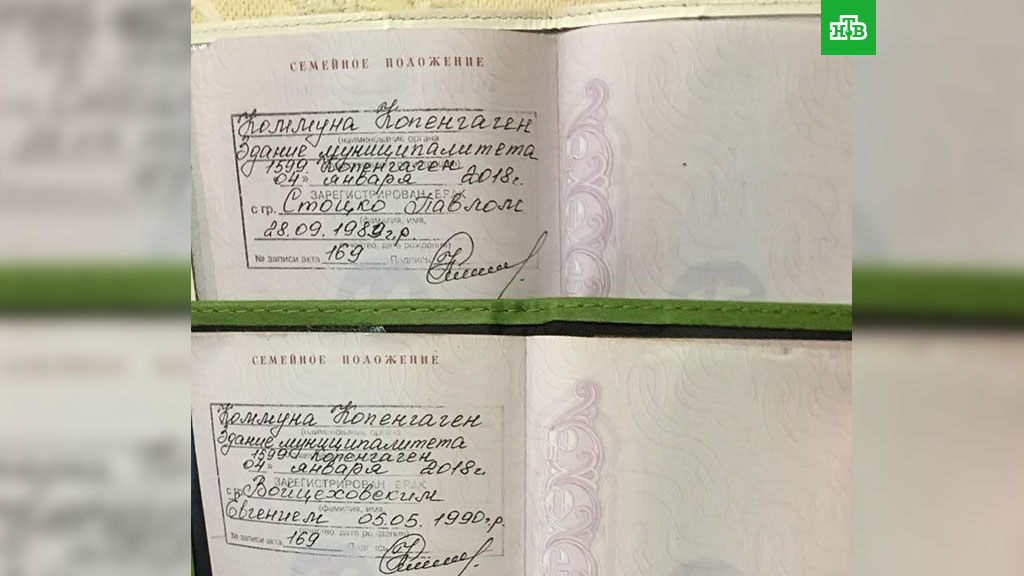 НТВ
СЕМЕЙНОЕ ПОЛОЖЕНИЕ
Коммуна Копенгаген
(наименование органа
Здание муниципалитета
1599. Копенгаген
04» января 2018г.
ЗАРЕГИСТРИРОВАН БРАК
с гр. Стоцко Павлом
(фамилия, имя,
28.09.1989г.р.
отчество, дата рождения)
№ записи акта 169 Подпись
СЕМЕЙНОЕ ПОЛОЖЕНИЕ
Коммуна Копенгаген
(наименование органа
Здание муниципалитета
1599. Копенгаген
04» января 2018г.
ЗАРЕГИСТРИРОВАН БРАК
с гр. Войцеховским
(фамилия, имя,
Евгением 05.05.1990г.р.
отчество, дата рождения)
№ записи акта 169 Подпись